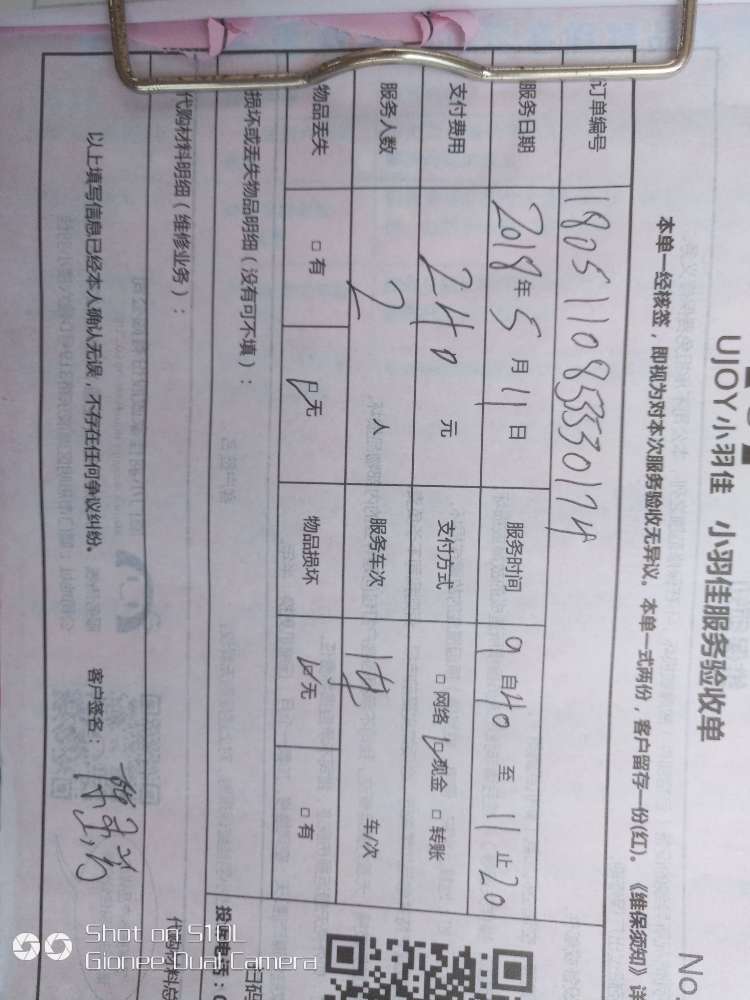 No
UJOY小羽佳 小羽佳服务验收单
本单一经核签，即视为对本次服务验收无异议。本单一式两份，客户留存一份(红)。《维保须知》详
订单编号 180511085330174
服务日期 2018年5月11日 服务时间 9自40至11止20
支付费用 240元 支付方式 □网络 ☑现金 □转账
服务人数 2人 服务车次 1车 车/次
物品丢失 □有 ☑无 物品损坏 ☑无 □有
损坏或丢失物品明细（没有可不填）：
代购材料明细（维修业务）：
代购材料总
以上填写信息已经本人确认无误，不存在任何争议纠纷。 客户签名：
扫码
投诉电话：0
Shot on S10L
Gionee Dual Camera